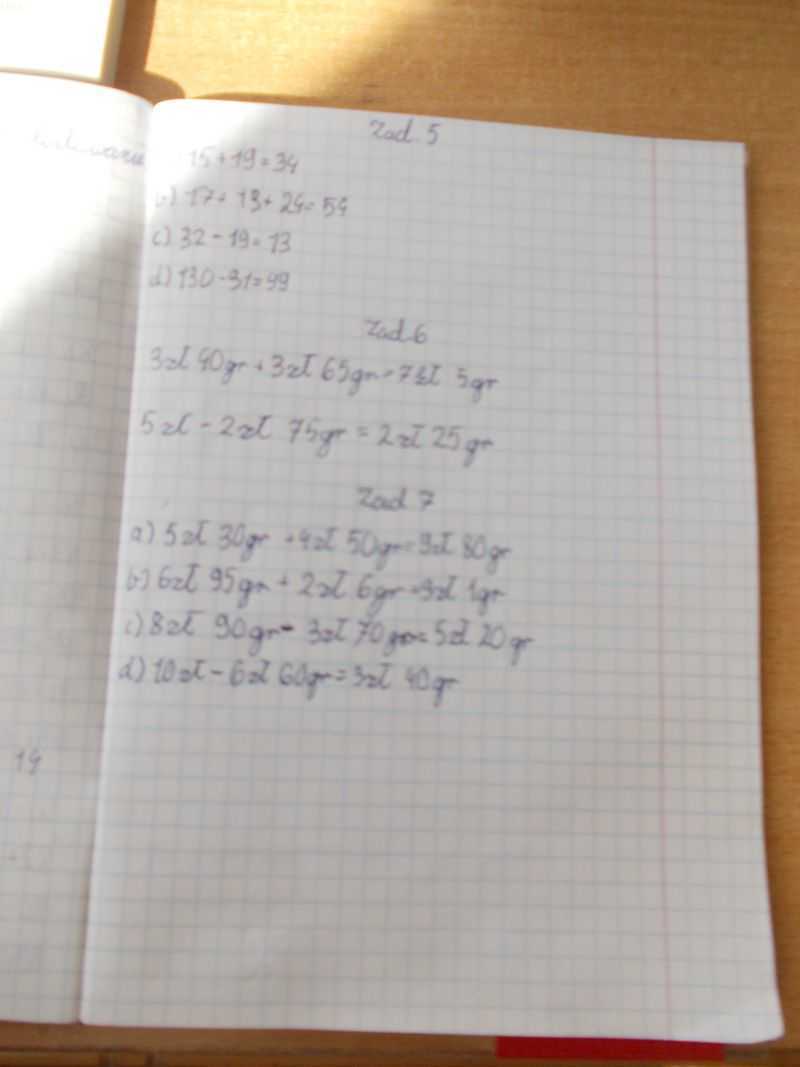 Zad. 5
15 + 19 = 34
b) 17 + 13 + 24 = 54
c) 32 - 19 = 13
d) 130 - 31 = 99
Zad. 6
3 zł 40 gr + 3 zł 65 gr = 7 zł 5 gr
5 zł - 2 zł 75 gr = 2 zł 25 gr
Zad 7
a) 5 zł 30 gr + 4 zł 50 gr = 9 zł 80 gr
b) 6 zł 95 gr + 2 zł 6 gr = 9 zł 1 gr
c) 8 zł 90 gr - 3 zł 70 gr = 5 zł 20 gr
d) 10 zł - 6 zł 60 gr = 3 zł 40 gr
19